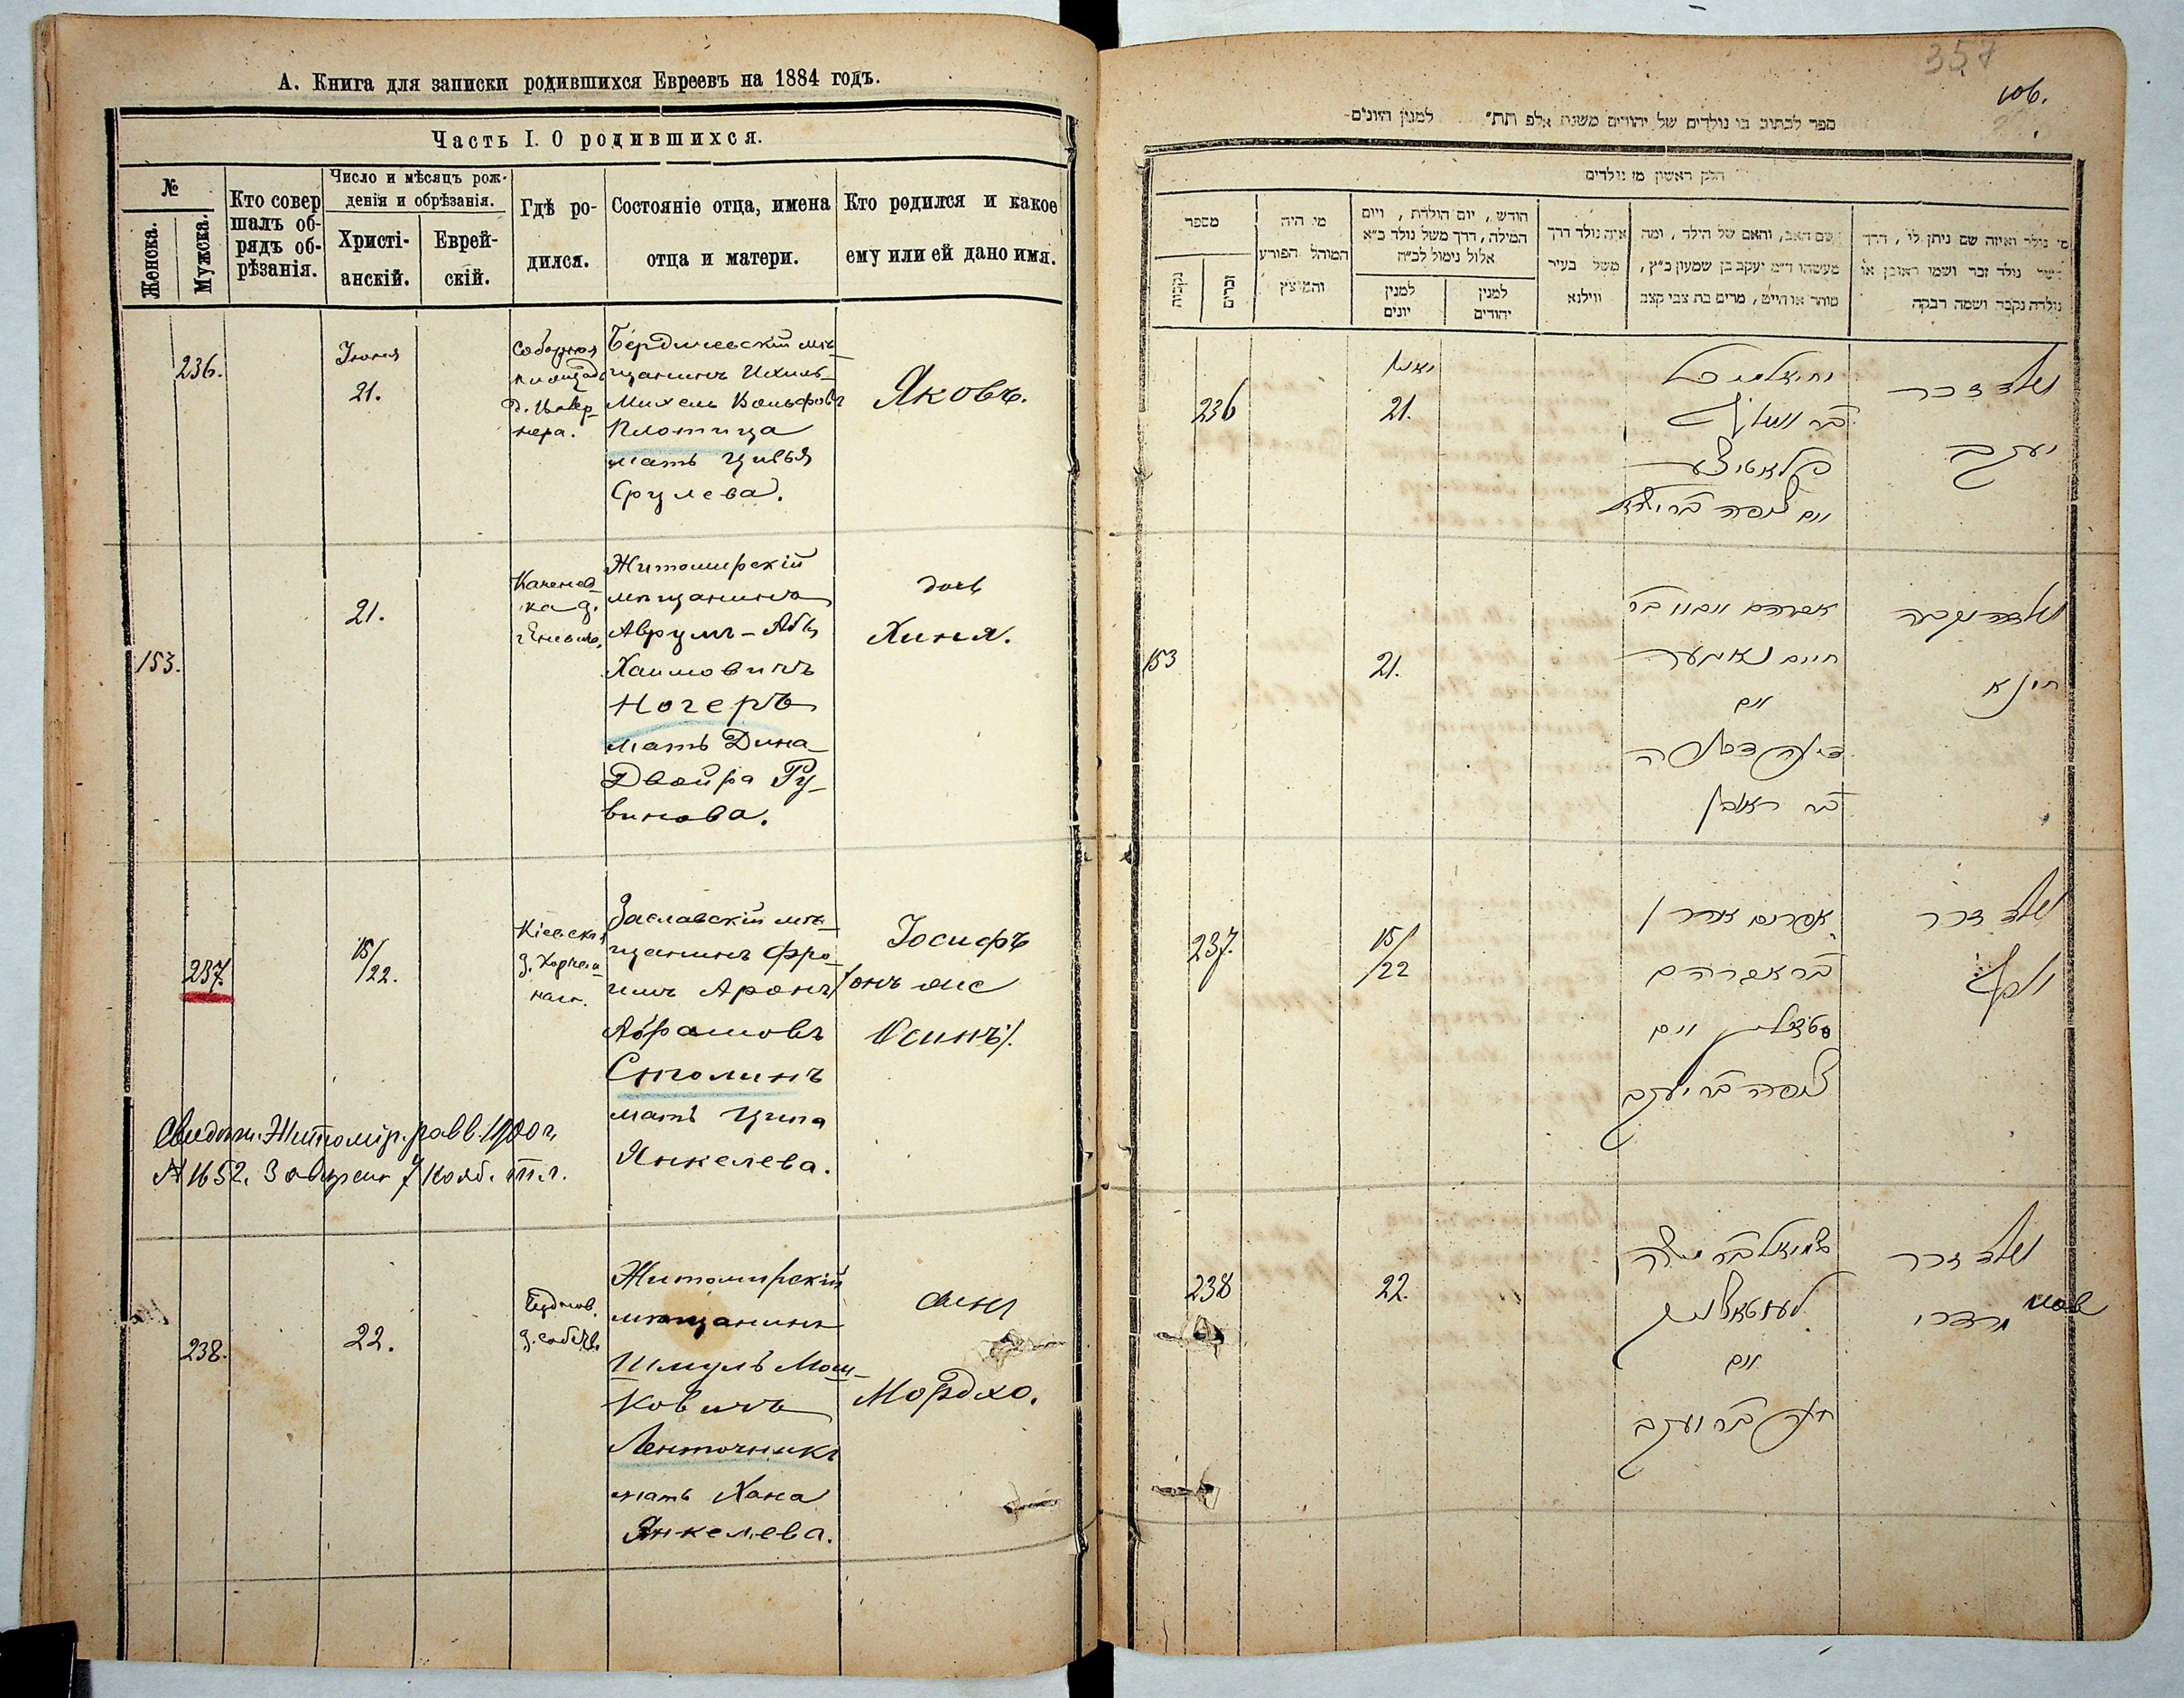 А. Книга для записки родившихся Евреевъ на 1884 годъ.
Часть I. О родившихся.
№
Женска.
Мужска.
Кто совер
шалъ об-
рядъ об-
рѣзанія.
Число и мѣсяцъ рож-
денія и обрѣзанія.
Христі-
анскій.
Еврей-
скій.
Гдѣ ро-
дился.
Состояніе отца, имена
отца и матери.
Кто родился и какое
ему или ей дано имя.
236.
Іюня
21.
Соборная
площадь
Бердичевскій мѣ-
щанинъ Ихиль-
Михель Вольфовъ
Плотица
мать Цивья
Срулева.
Яковъ.
153.
21.
Житомирскій
мѣщанинъ
Аврумъ-Аба
Хаимовичъ
Ногеръ
мать Дина-
Двойра Ру-
винова.
дочь
Хиня.
237.
15/
/22.
Кіевская
Заславскій мѣ-
щанинъ Фро-
имъ Аронъ
Абрамовъ
Столинъ
мать Ципа
Янкелева.
Іосифъ
/онъ же
Осипъ/.
Свидѣт. Житомір. равв. 1900 г.
№ 1652.
238.
22.
Житомирскій
мѣщанинъ
Шмуль Мош-
ковичъ
Ленточникъ
мать Хана
Янкелева.
сынъ
Мордхо.
357
106.
ספר לכתוב בו נולדים של יהודים משנת אלף תת״ למנין היונים
חלק ראשון מן נולדים
מספר
נקבות
זכרים
מי היה
המוהל הפורע
והמוצץ
חודש, יום הולדת, ויום
המילה, דרך משל נולד כ״א
אלול נימול לכ״ה
למנין
יונים
למנין
יהודים
איה נולד דרך
משל בעיר
ווילנא
שם האב, והאם של הילד, ומה
מעשהו ד״מ יעקב בן שמעון כ״ץ,
סוחר או חייט, מרים בת צבי קצב
מי נולד ואיזה שם ניתן לו, דרך
משל נולד זכר ושמו ראובן או
נולדה נקבה ושמה רבקה
236
יוני
21.
נולד זכר
יעקב
153
21.
חיים
דינה דבורה
בת ראובן
נולדה נקבה
חינא
237.
15/
/22
אפרים אהרן
בר אברהם
צפה בת יעקב
נולד זכר
יוסף
238
22.
שמואל בר משה
חנה בת יעקב
נולד זכר
מרדכי